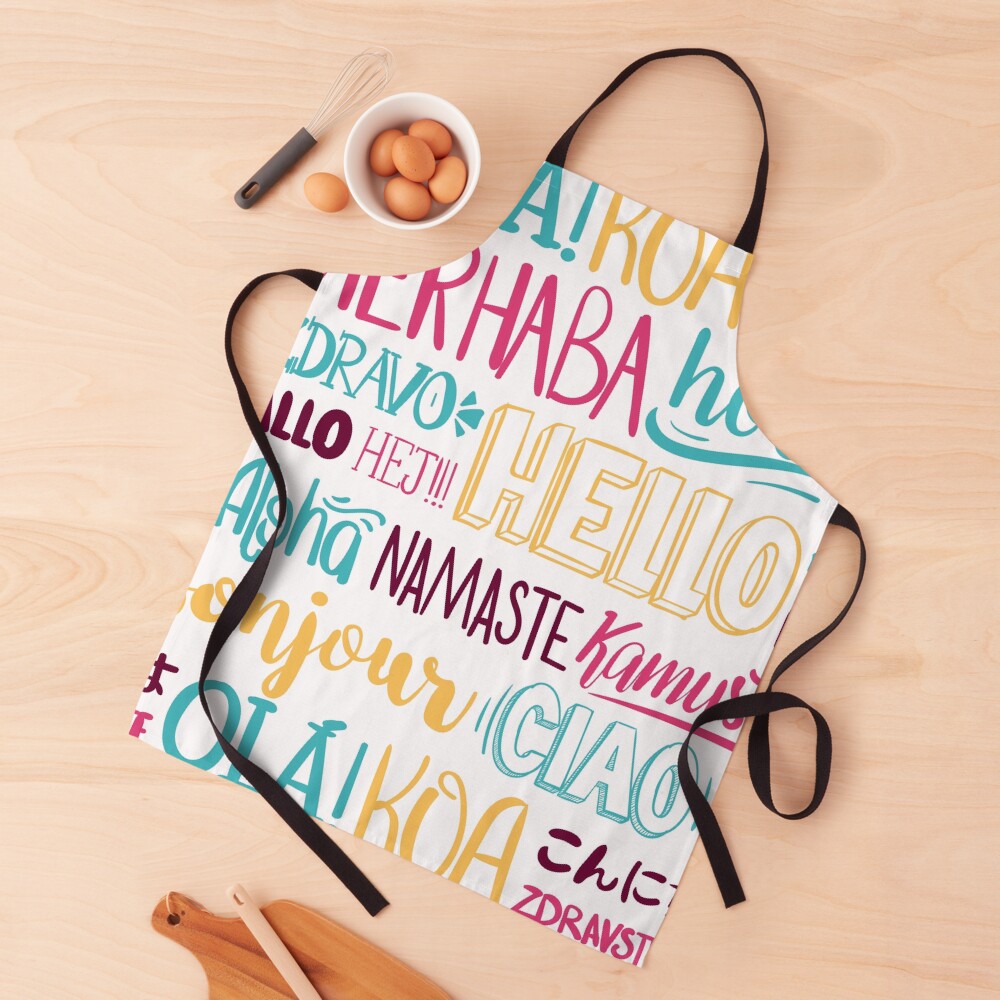 A! KOA
ERHABA
ho
ZDRAVO
ALLO HEJ!!! HELLO
Aloha NAMASTE
Kamus
onjour CIAO
は
OLÁ! KOA
こんに
ZDRAVST